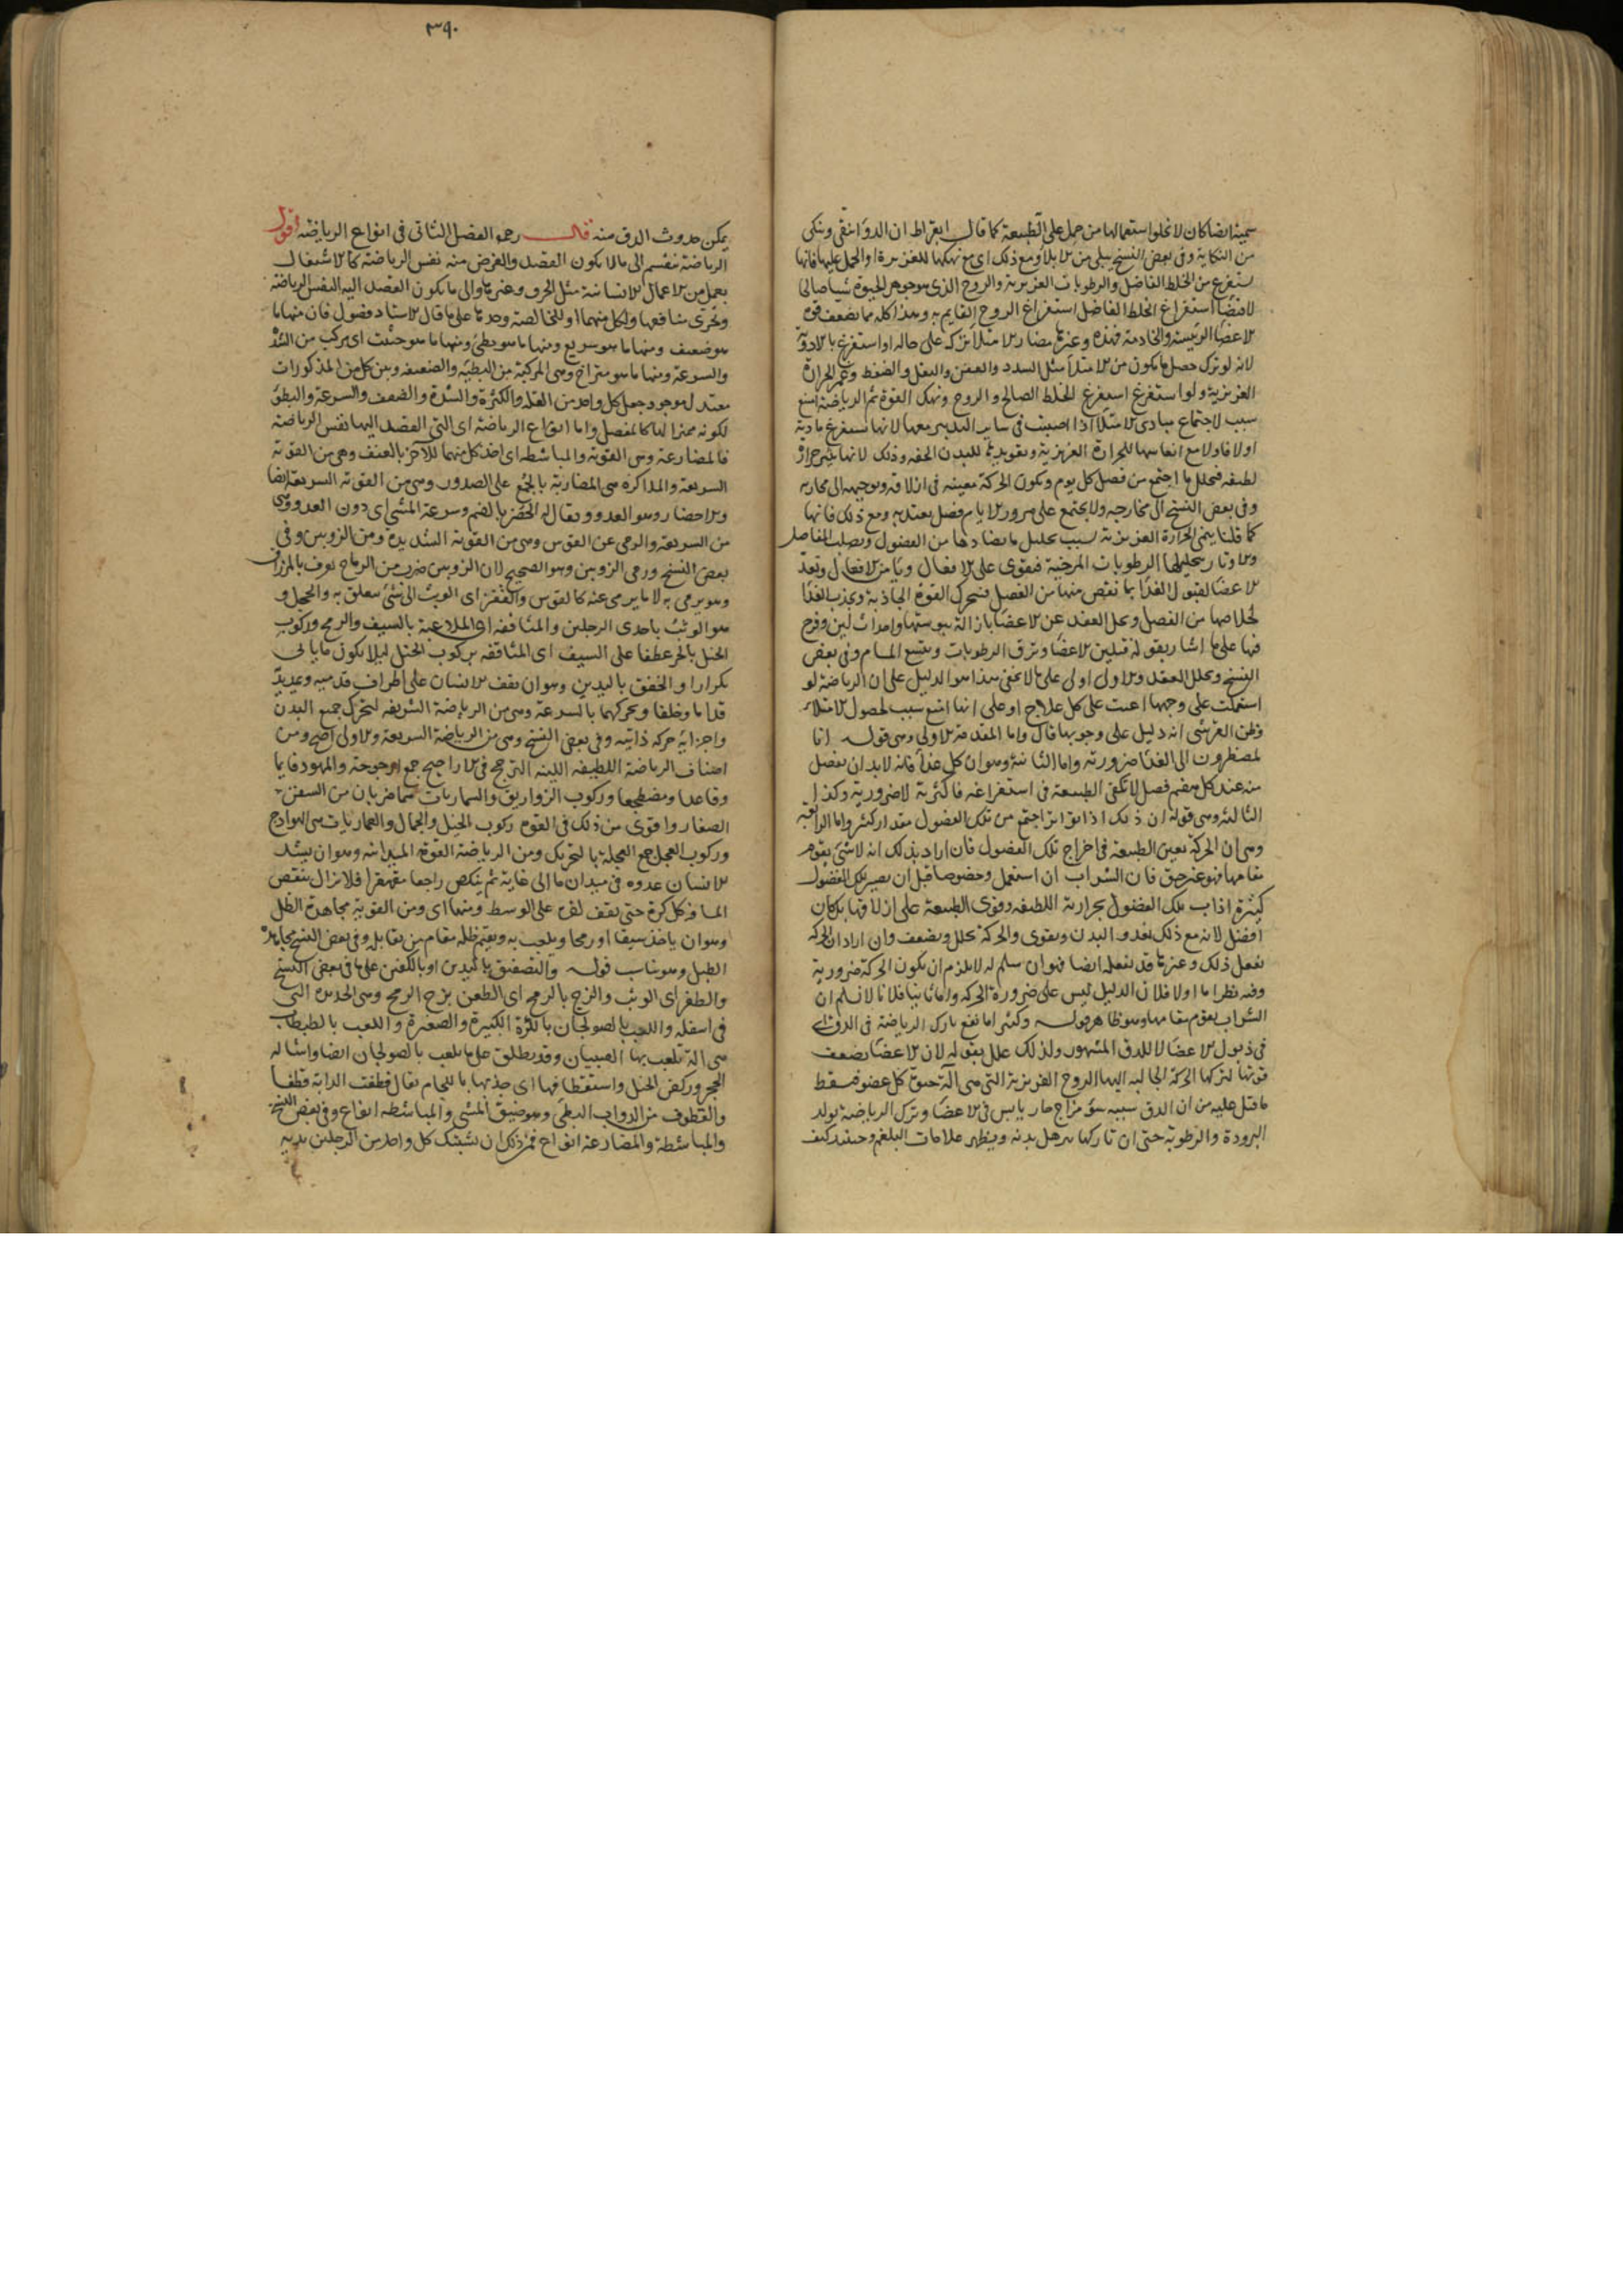 سمية ايضا كان لا تخلو استعمالها من حمل على الطبيعة كما قال ابقراط ان الدوا ينقى وينكى
من النكاية وفى بعض النسخ يبلى من الابلاء ومع ذلك اى مع نهكها للغريزة او الحمل عليها فانها
تستفرغ من الخلط الفاضل والرطوبات الغريزية والروح الذى هو جوهر الحيوة شيا صالحا
لاقتضا استفراغ الخلط الفاضل استفراغ الروح القايم به وهذا كله مما يضعف قوة
الاعضا الرئيسة والخادمة فهذه وغيرها مضار الامتلا ترك على حاله او استفرغ بالادوية
لانه لو ترك حصل ما يكون من الامتلا مثل السدد والعفن والثقل والضغط وغمر الحرارة
الغريزية ولو استفرغ استفرغ الخلط الصالح والروح ونهك القوة ثم الرياضة امنع
سبب لاجتماع مبادى الامتلا اذا اصيبت فى ساير التدبير معها لانها تستفرغ مادته
اولا فاولا مع انعاشها للحرارة الغريزية وتعويدها للبدن الخفة وذلك لانها تثير حرارة
لطيفة فتحلل ما اجتمع من فضل كل يوم وتكون الحركة معينة فى ازلاقه وتوجيهه الى مخارجه
وفى بعض النسخ الى مخارجه ولا يجتمع على مرور الايام فضل يعتد به ومع ذلك فانها
كما قلنا ينمى الحرارة الغريزية بسبب تحليل ما يضادها من الفضول ويصلب المفاصل
والاوتار بتحليلها الرطوبات المرخية فيقوى على الافعال ويأمن الانفعال وتعد
الاعضا لقبول الغذا بما ينقص منها من الفضل فتتحرك القوة الجاذبة وتجذب الغذا
لخلاصها من الفضل وتحل العقد عن الاعضا بازالة يبوستها واحداث لين وفرج
فيها على ما اشار بقوله فتلين الاعضا وترق الرطوبات وتتسع المسام وفى بعض
النسخ وتحلل العقد والاول اولى على ما لا يخفى هذا هو الدليل على ان الرياضة لو
استعملت على وجهها اغنت عن كل علاج او على انها امنع سبب لحصول الامتلاء
وظن القرشى انه دليل على وجوبها قال واما المقدمة الاولى وهى قوله انا
لمضطرون الى الغذا ضرورية واما الثانية وهو ان كل غذا فانه لا بد ان يفضل
منه عند كل هضم فضل لا تكفى الطبيعة فى استفراغه فاكثرية لا ضرورية وكذا
الثالثة وهى قوله ان ذلك اذا تواتر اجتمع من تلك الفضول مقدار كثير واما الرابعة
وهى ان الحركة تعين الطبيعة فى اخراج تلك الفضول فان اراد بذلك انه لا شئ يقوم
مقامها فهو غير حق فان الشراب ان استعمل وخصوصا قبل ان يصير تلك الفضول
كثيرة اذاب تلك الفضول بحرارته اللطيفة وقوى الطبيعة على ازلاقها بل كان
افضل لانه مع ذلك يغذو البدن ويقوى والحركة تحلل وتضعف وان اراد ان الحركة
تفعل ذلك وغيرها قد تفعله ايضا فهو ان سلم له لا يلزم ان يكون الحركة ضرورية
وفيه نظر اما اولا فلان الدليل ليس على ضرورة الحركة واما ثانيا فلانا لا نسلم ان
الشراب يقوم مقامها وهو ظاهر قوله وكثيرا ما يقع تارك الرياضة فى الدق اى
فى ذبول الاعضا لا للدق المشهور ولذلك علل بقوله لان الاعضا تضعف
قوتها لتركها الحركة الجالبة اليها الروح الغريزية التى هى آلة حيوة كل عضو فسقط
ما قيل عليه من ان الدق سببه سوء مزاج حار يابس فى الاعضا وترك الرياضة يولد
البرودة والرطوبة حتى ان تاركها يترهل بدنه ويظهر علامات البلغم وحينئذ كيف
٣٩٠
يمكن حدوث الدق منه قال رحمه الفصل الثانى فى انواع الرياضة اقول
الرياضة تنقسم الى ما لا يكون القصد والغرض منه نفس الرياضة كالاشتغال
بعمل من الاعمال الانسانية مثل الحرف وغيرها والى ما يكون القصد اليه لنفس الرياضة
وتحرى منافعها ولكل منهما او للخالصة وحدها على ما قال الاستاد فصول فان منها ما
هو ضعيف ومنها ما هو سريع ومنها ما هو بطئ ومنها ما هو حثيث اى مركب من الشدة
والسرعة ومنها ما هو متراخ وهى المركبة من البطيئة والضعيفة وبين كل من المذكورات
معتدل موجود جعل كل واحد من القلة والكثرة والشدة والضعف والسرعة والبطؤ
لكونه مميزا لها كالفصل واما انواع الرياضة اى التى القصد اليها نفس الرياضة
فالمصارعة وهى القوية والمباطشة اى اخذ كل منهما للآخر بالعنف وهى من القوية
السريعة والملاكزة هى المضاربة بالجمع على الصدور وهى من القوية السريعة ايضا
والاحضار وهو العدو ويقال له الحضر بالضم وسرعة المشى اى دون العدو وهى
من السريعة والرمى عن القوس وهى من القوية الشديدة ومن الزوبين وفى
بعض النسخ ورمى الزوبين وهو الصحيح لان الزوبين ضرب من الرماح يعرف بالمزراق
وهو يرمى به لا ما يرمى عنه كالقوس والقفز اى الوثب الى شئ متعلق به والحجل و
هو الوثب باحدى الرجلين والمثاقفة اى الملاعبة بالسيف والرمح وركوب
الخيل بالجر عطفا على السيف اى المثاقفة بركوب الخيل ليلا يكون ما يأتى
تكرارا والخفق باليدين وهو ان يقف الانسان على اطراف قدميه ويمد يديه
قداما وخلفا ويحركهما بالسرعة وهى من الرياضة الشريفة لتحرك جميع البدن
واجزائه حركة ذاتية وفى بعض النسخ وهى من الرياضة السريعة والاولى اصح ومن
اصناف الرياضة اللطيفة اللينة الترجح فى الاراجيح جمع ارجوحة والمهود قايما
وقاعدا ومضطجعا وركوب الزواريق والسماريات هما ضربان من السفن
الصغار واقوى من ذلك فى القوة ركوب الخيل والجمال والعماريات هى الهوادج
وركوب العجل جمع العجلة بالتحريك ومن الرياضة القوية الميدانية وهو ان يشد
الانسان عدوه فى ميدان ما الى غاية ثم ينكص راجعا متقهقرا فلا يزال ينقص
المسافة كل كرة حتى يقف لقره على الوسط ومنها اى ومن القوية مجاهدة الظل
وهو ان ياخذ سيفا او رمحا ويلعب به ويقيم ظله مقام من يقابله وفى بعض النسخ مجاهدة
الطبل وهو يناسب قوله والتصفيق باليدين او بالكفين على ما فى بعض النسخ
والطفر اى الوثب والزج بالرمح اى الطعن بزج الرمح وهى الحديدة التى
فى اسفله واللعب بالصولجان بالكرة الكبيرة والصغيرة واللعب بالطبطاب
هى آلة تلعب بها الصبيان وقد يطلق على ما يلعب بالصولجان ايضا واشالة
الحجر وركض الخيل واستقطافها اى جذبها باللجام يقال قطفت الدابة قطفا
والقطوف من الدواب البطئ وهو ضيق المشى والمباطشة انواع وفى بعض النسخ
والمباطشة والمصارعة انواع فمن ذلك ان يشبك كل واحد من الرجلين يديه